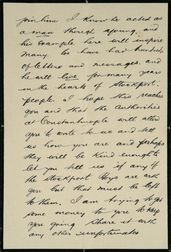 him I know he acted as
a man there. dying, and
his example here will inspire
many. We have had hundreds
of letters and messages, and
he will live for many years
in the hearts of Stockport
people. I hope this reaches
you and that the authorities
at Constantinople will allow
you to write to me and tell
us how you are and perhaps
they will be kind enough to
let you tell us if any of
the Stockport Boys are with
you but that must be left
to them. I am trying to get
some money to you to keep
you going share it with
any other unfortunates